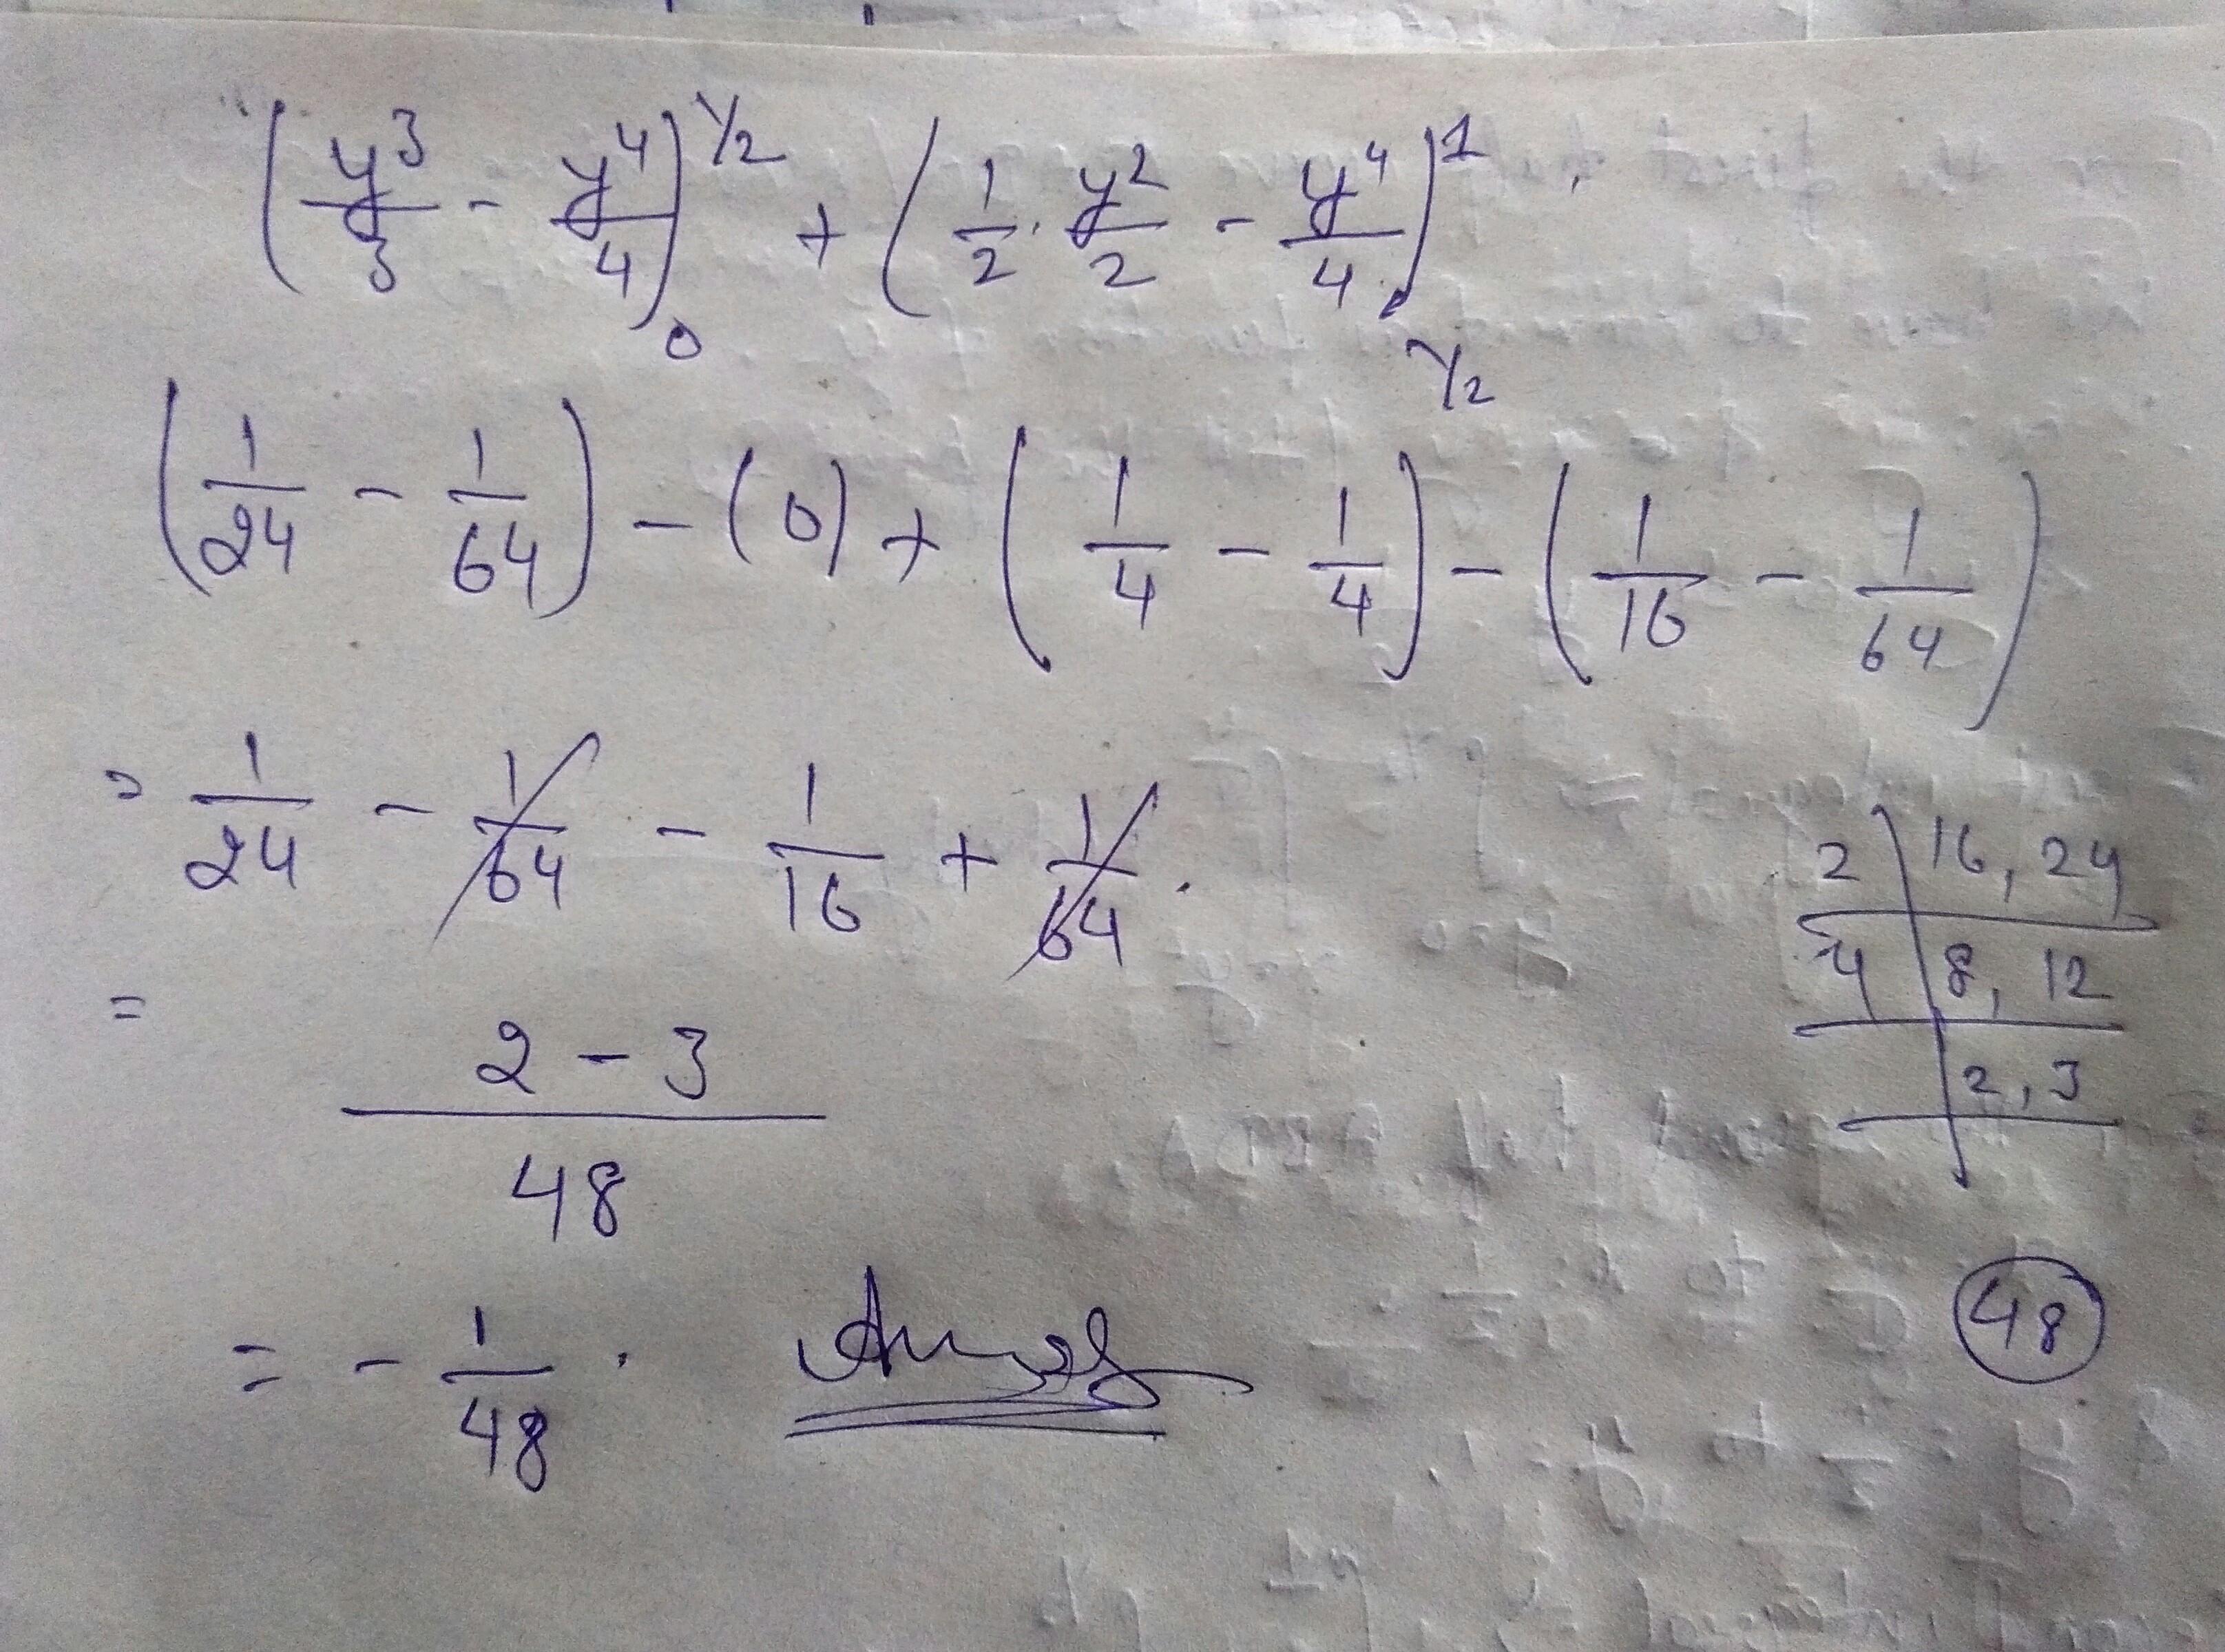 (y³/3 - y⁴/4)₀^1/2 + (1/2 · y²/2 - y⁴/4)_1/2^1 .
(1/24 - 1/64) - (0) + (1/4 - 1/4) - (1/16 - 1/64)
= 1/24 - 1/64 - 1/16 + 1/64 .
2 | 16, 24
4 | 8, 12
2, 3
= 2 - 3 / 48
48
= - 1/48 .